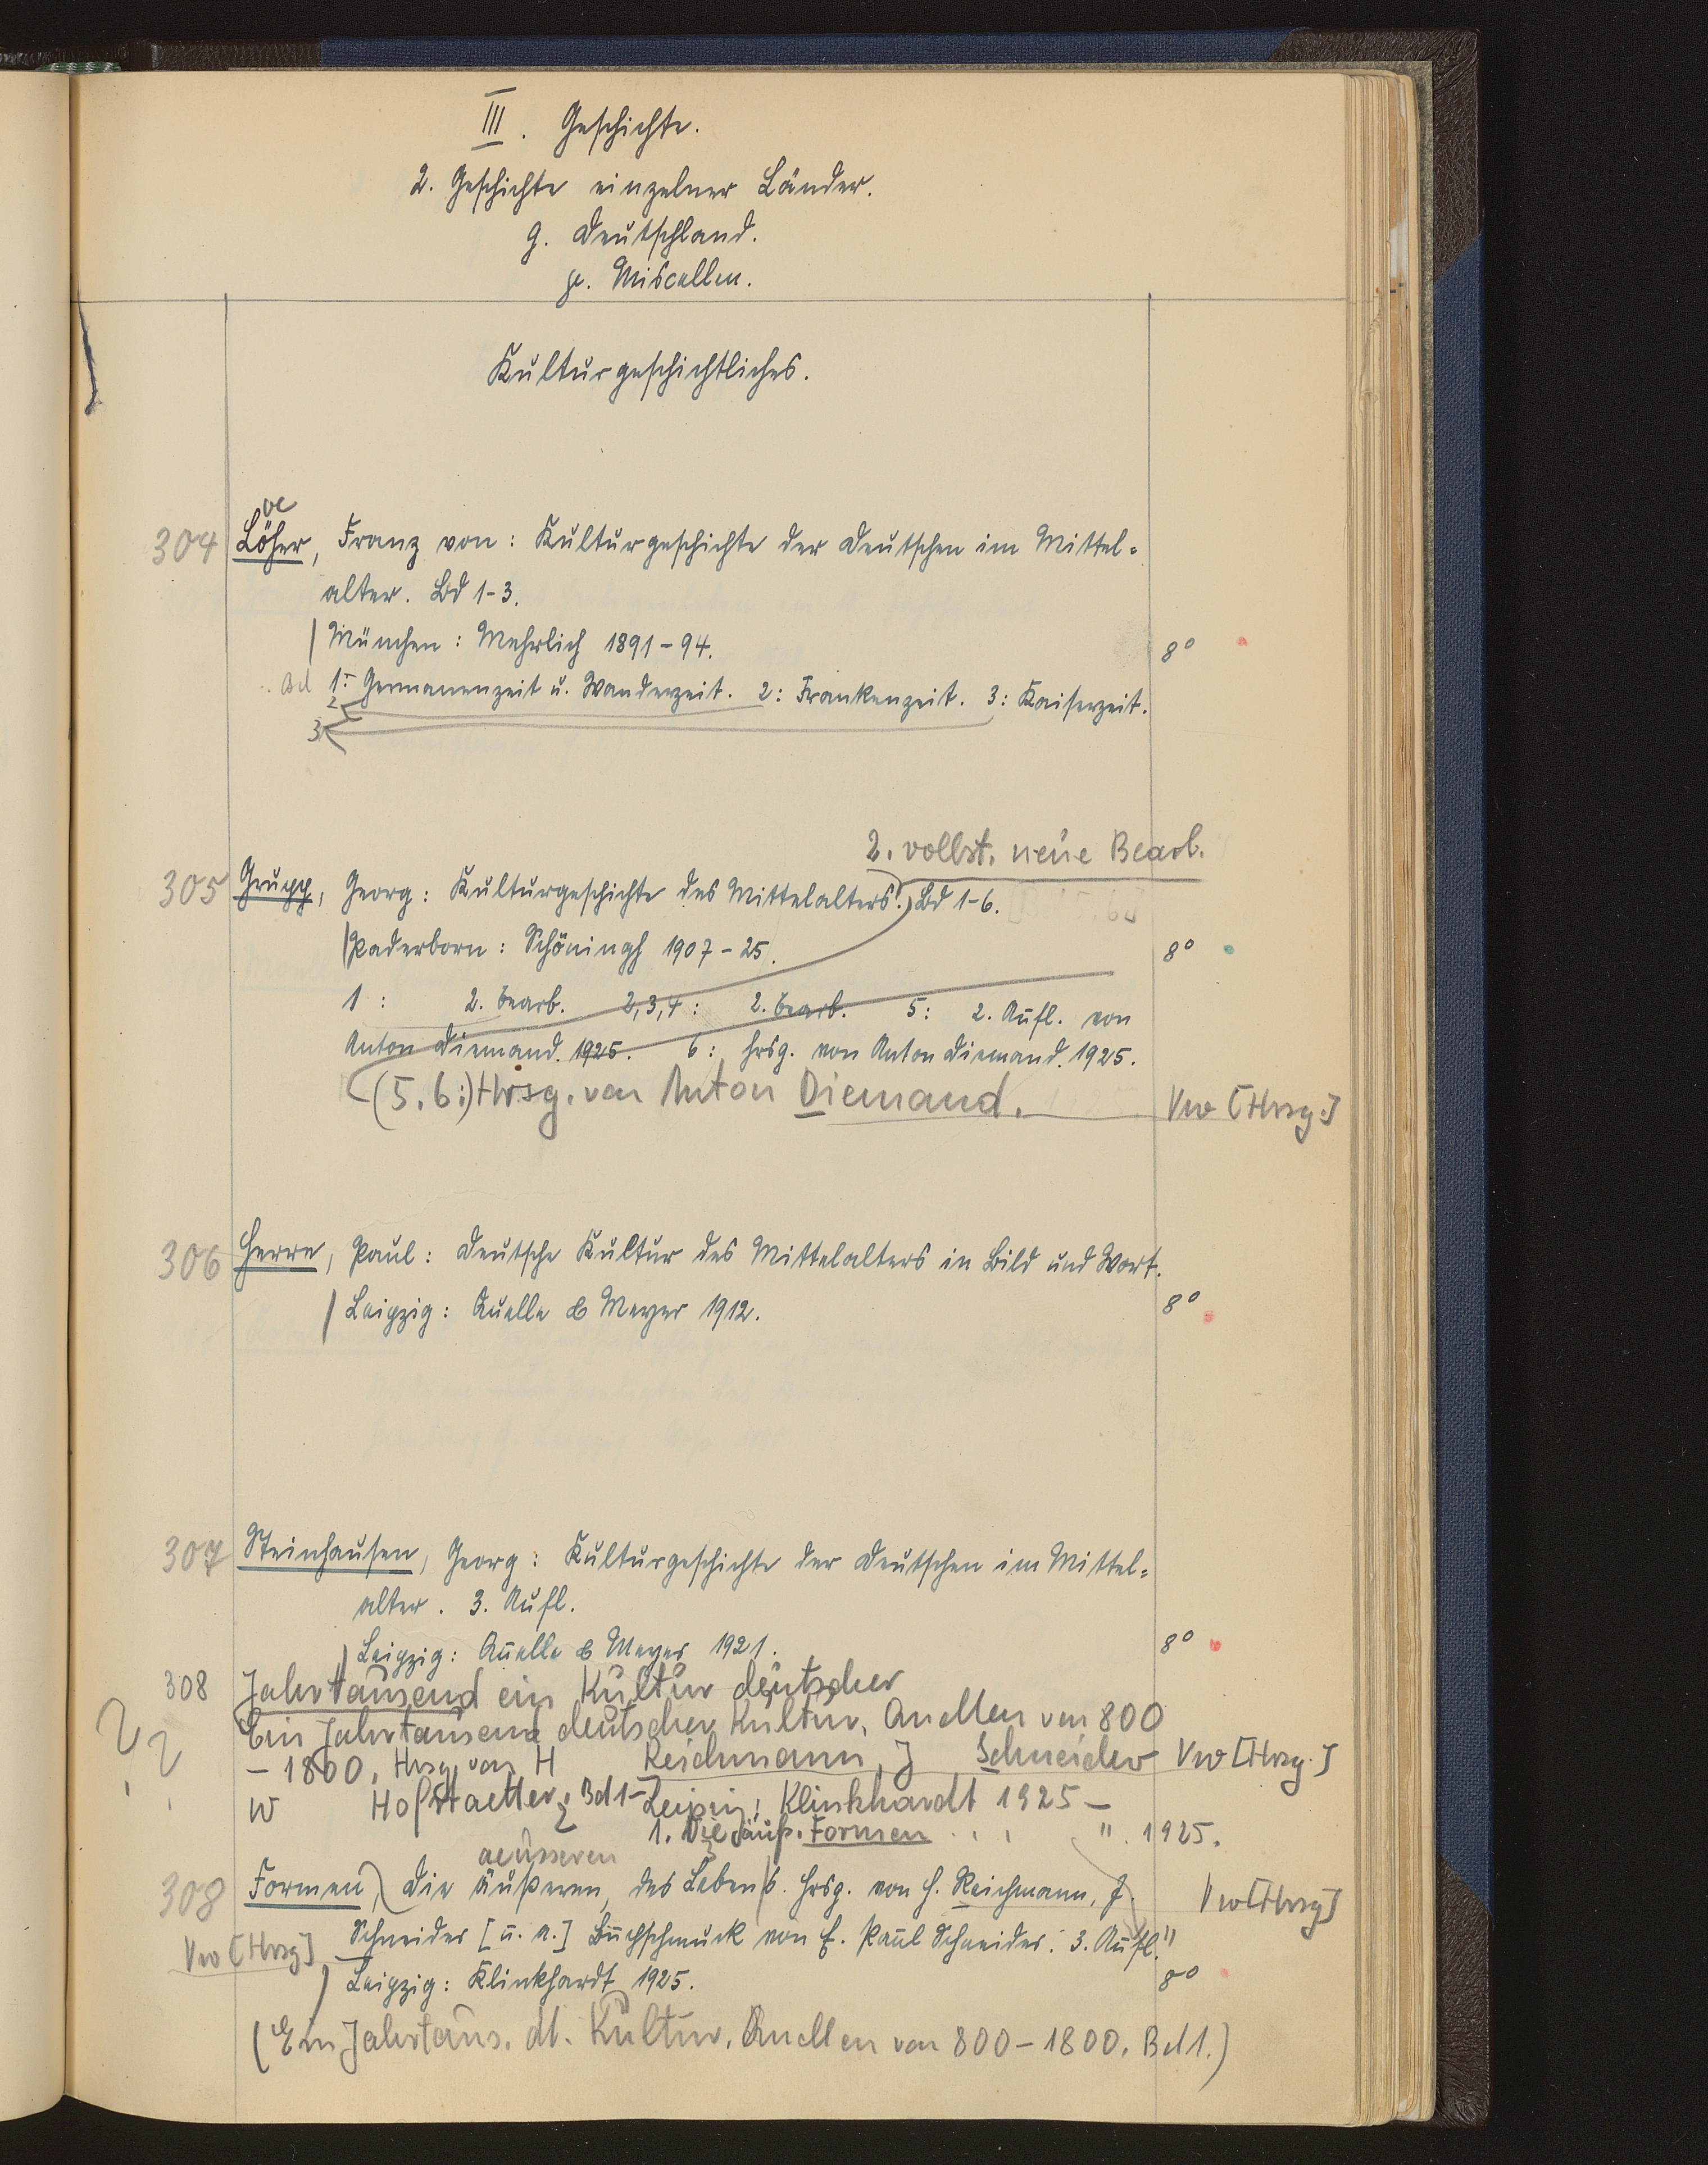 III. Geschichte.
2. Geschichte einzelner Länder.
g. Deutschland.
γε. Miscellen.
Kulturgeschichtliches.
oe
304 Löher, Franz von: Kulturgeschichte der Deutschen im Mittel-
alter. Bd 1-3.
München: Mehrlich 1891-94. 8°
Bd 1: Germanenzeit u. Wanderzeit. 2: Frankenzeit. 3: Kaiserzeit.
2
3
2. vollst. neue Bearb.
305 Grupp, Georg: Kulturgeschichte des Mittelalters. Bd 1-6.
Paderborn: Schöningh 1907-25. 8°
1: 2. Bearb. 2,3,4: 2. Bearb. 5: 2. Aufl. von
Anton Diemand. 1925. 6: Hrsg. von Anton Diemand. 1925.
(5.6:) Hrsg. von Anton Diemand. Vw [Hrsg.]
306 Herre, Paul: Deutsche Kultur des Mittelalters in Bild und Wort.
Leipzig: Quelle & Meyer 1912. 8°
307 Steinhausen, Georg: Kulturgeschichte der Deutschen im Mittel-
alter. 3. Aufl.
Leipzig: Quelle & Meyer 1921. 8°
308 Jahrtausend ein Kultur deutscher
Ein Jahrtausend deutscher Kultur. Quellen von 800
- 1800. Hrsg. von H Reichmann, J Schneider Vw [Hrsg.]
W Hofstaetter. Bd 1- Leipzig: Klinkhardt 1925-
1. Die äuß. Formen . . . " . 1925.
aeusseren
308 Formen, Die äußeren, des Lebens. Hrsg. von H. Reichmann, J. Vw [Hrsg]
Schneider [u. a.] Buchschmuck von E. Paul Schneider. 3. Aufl."
Vw [Hrsg]
Leipzig: Klinkhardt 1925. 8°
(Ein Jahrtaus. dt. Kultur. Quellen von 800-1800. Bd 1.)